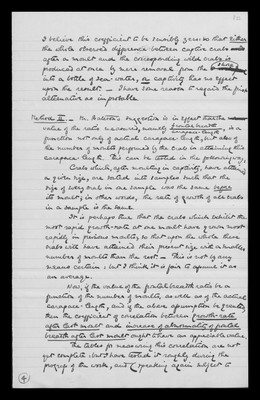 I believe this coefficient to be sensibly zero: so that either
the whole observed difference between captive crabs
after a moult and the corresponding wild crabs is
produced at once by mere removal from the shore
into a bottle of sea-water, or captivity has no effect
upon the result — I have some reason to regard the first
alternative as improbable.
Method II — Mr. suggestion is in effect that the
value of the ratio measured, namely frontal breadth
carapace-length, is a
function not only of actual carapace length, but also of
the number of moults performed by the crab in attaining this
carapace-length. This can be tested in the following way,
Crabs which, after moulting in captivity, have attained
a given size, are sorted into samples such that the
size of every crab in one sample was the same before
its moult; in other words, the rate of growth of all crabs
in a sample is the same.
It is perhaps true that the crabs which exhibit the
most rapid growth-rate at one moult have grown most
rapidly in previous moults, so that upon the whole these
crabs will have attained their present size with a smaller
number of moults than the rest — This is not by any
means certain; but I think it is fair to assume it as
an average.
Now, if the value of the frontal breadth ratio be a
function of the number of moults, as well as of the actual
carapace-length, and if the above assumption be granted,
then the coefficient of correlation between growth-rate
after last moult and increase of abnormality of frontal
breadth after last moult ought to have an appreciable value.
The tables for measuring this correlation are not
yet complete; but I have tested it roughly during the
progress of the work, and (speaking again subject to
4